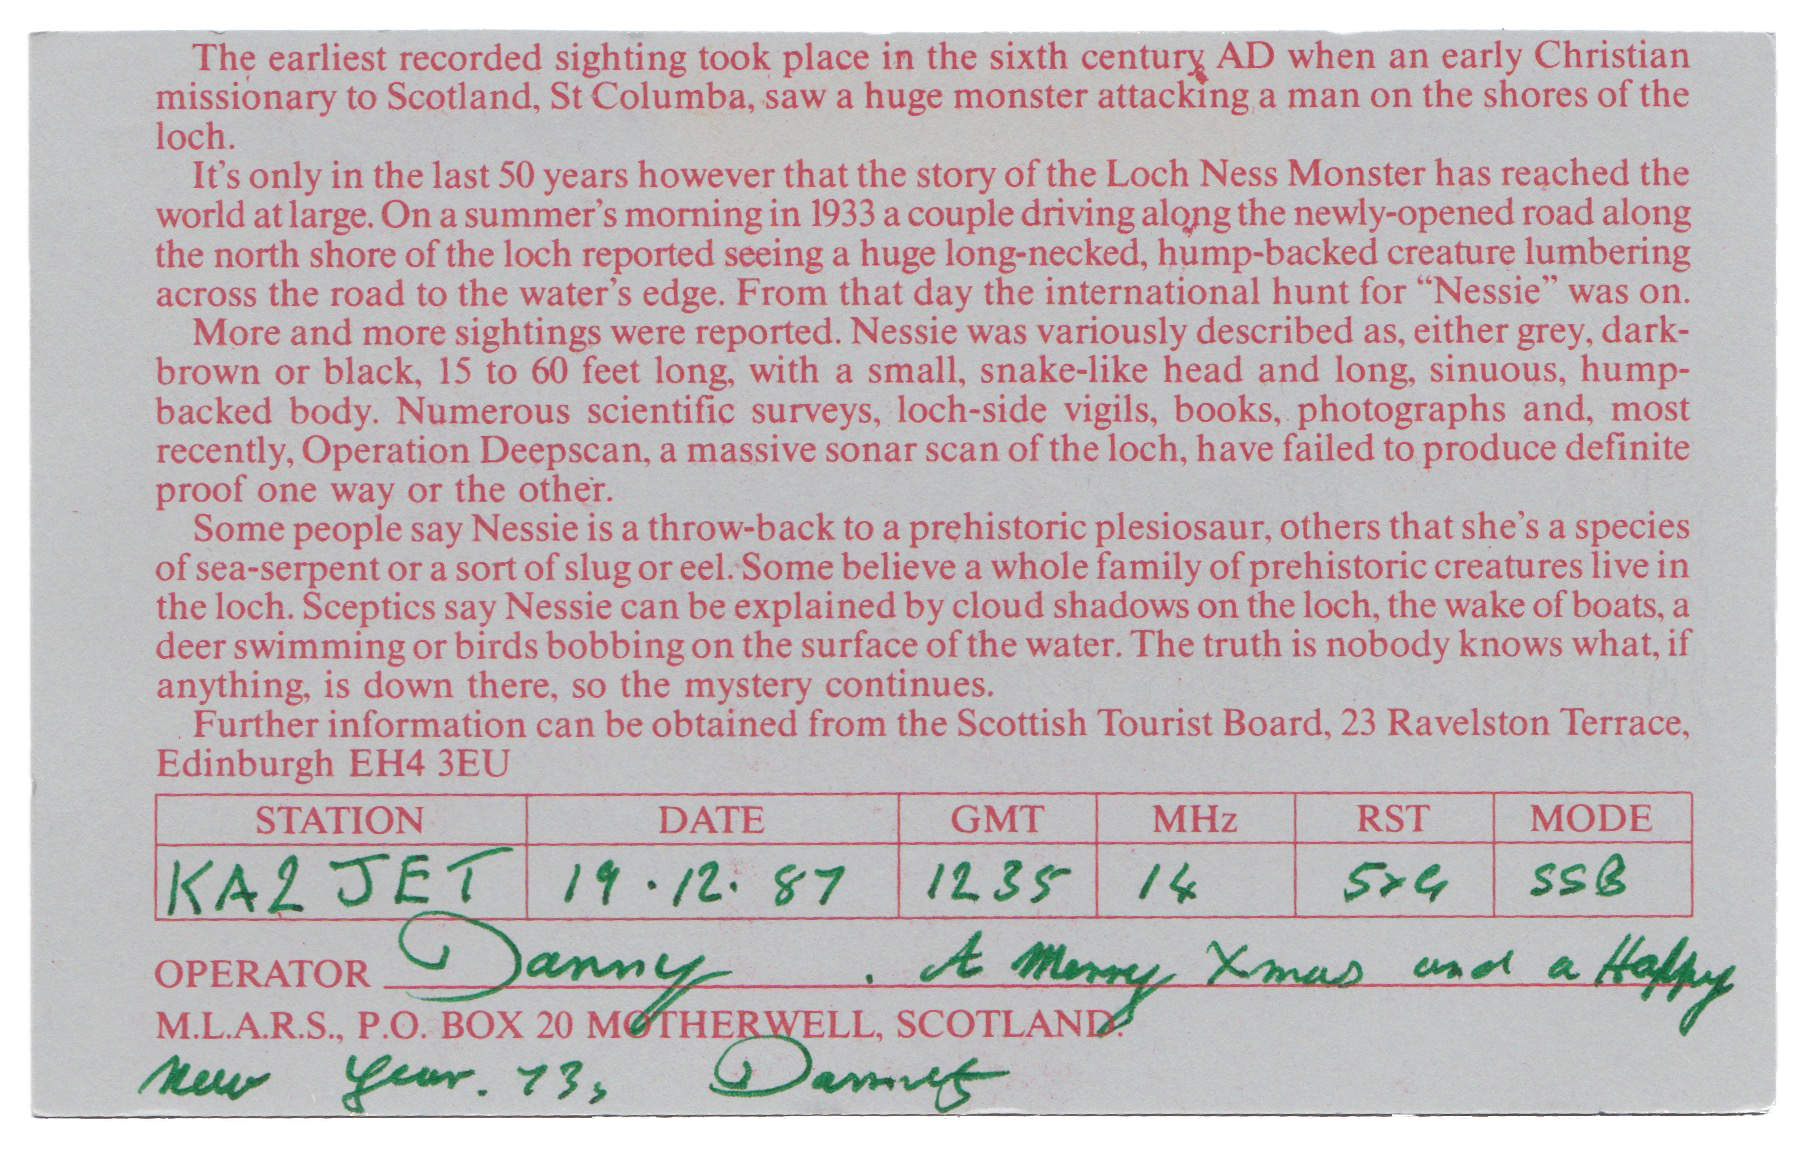 The earliest recorded sighting took place in the sixth century AD when an early Christian
missionary to Scotland, St Columba, saw a huge monster attacking a man on the shores of the
loch.
It's only in the last 50 years however that the story of the Loch Ness Monster has reached the
world at large. On a summer's morning in 1933 a couple driving along the newly-opened road along
the north shore of the loch reported seeing a huge long-necked, hump-backed creature lumbering
across the road to the water's edge. From that day the international hunt for “Nessie” was on.
More and more sightings were reported. Nessie was variously described as, either grey, dark-
brown or black, 15 to 60 feet long, with a small, snake-like head and long, sinuous, hump-
backed body. Numerous scientific surveys, loch-side vigils, books, photographs and, most
recently, Operation Deepscan, a massive sonar scan of the loch, have failed to produce definite
proof one way or the other.
Some people say Nessie is a throw-back to a prehistoric plesiosaur, others that she's a species
of sea-serpent or a sort of slug or eel. Some believe a whole family of prehistoric creatures live in
the loch. Sceptics say Nessie can be explained by cloud shadows on the loch, the wake of boats, a
deer swimming or birds bobbing on the surface of the water. The truth is nobody knows what, if
anything, is down there, so the mystery continues.
Further information can be obtained from the Scottish Tourist Board, 23 Ravelston Terrace,
Edinburgh EH4 3EU
STATION DATE GMT MHz RST MODE
KA2JET 19.12.87 1235 14 5x9 SSB
OPERATOR Danny. A Merry Xmas and a Happy
M.L.A.R.S., P.O. BOX 20 MOTHERWELL, SCOTLAND.
New Year. 73,